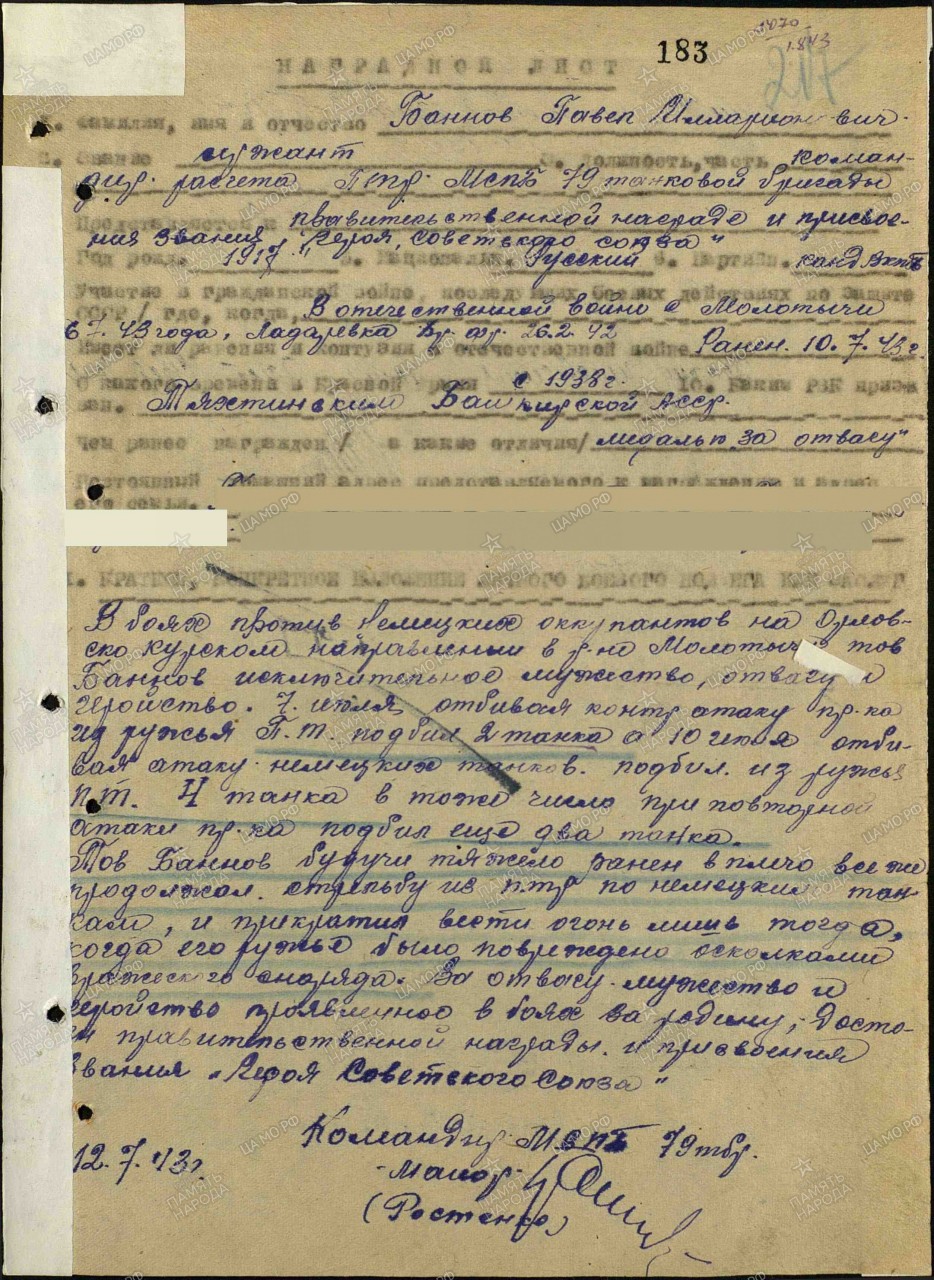 1070
1843
183
217
НАГРАДНОЙ ЛИСТ
1. Фамилия, имя и отчество Баннов Павел Илларионович.
2. Звание сержант 3. Должность, часть коман-
дир. расчета Птр. МспБ 79 танковой бригады
Представляется к правительственной награде и присвое-
ния звания "Героя, Советского союза"
Год рожд. 1917 Национальн. Русский 6. Партийн. канд Вкпб
Участие в гражданской войне, последующих боевых действиях по защите
СССР /где, когда/ В отечественной войне с Молотычи
6 7. 43 года, Бр. фр. 26.2.42
Имеет ли ранения и контузии в отечественной войне Ранен. 10. 7. 43 г.
С какого времени в Красной армии с 1938 г. 10. Каким РВК призва
зван. Башкирской АССР.
Чем ранее награжден / за какие отличия/ медалью "за отвагу"
Постоянный домашний адрес представляемого к награждению и адрес
его семьи.
1. КРАТКОЕ, КОНКРЕТНОЕ ИЗЛОЖЕНИЕ ЛИЧНОГО БОЕВОГО ПОДВИГА ИЛИ ЗАСЛУГ
В боях против немецких оккупантов на Орлов-
ско курском направлении в р-не Молотычи тов
исключительное мужество, отвагу и
геройство. 7. июля отбивая контр атаку пр-ка
из ружья П.Т. подбил 2 танка а 10 июля отби-
вая атаку немецких танков. подбил из ружья
П.Т. 4 танка в тоже число при повторной
атаки пр-ка подбил еще два танка.
Тов Баннов будучи тяжело ранен в плечо все же
продолжал. стрельбу из птр по немецким тан-
кам, и прекратил вести огонь лишь тогда,
когда его ружье было повреждено осколками
вражеского снаряда. За отвагу мужество и
геройство проявленное в боях за родину, Досто-
ин правительственной награды. и присвоения
звания „Героя Советского Союза"
Командир МспБ 79 тбр.
12. 7. 43 г. майор
(Ростенко)